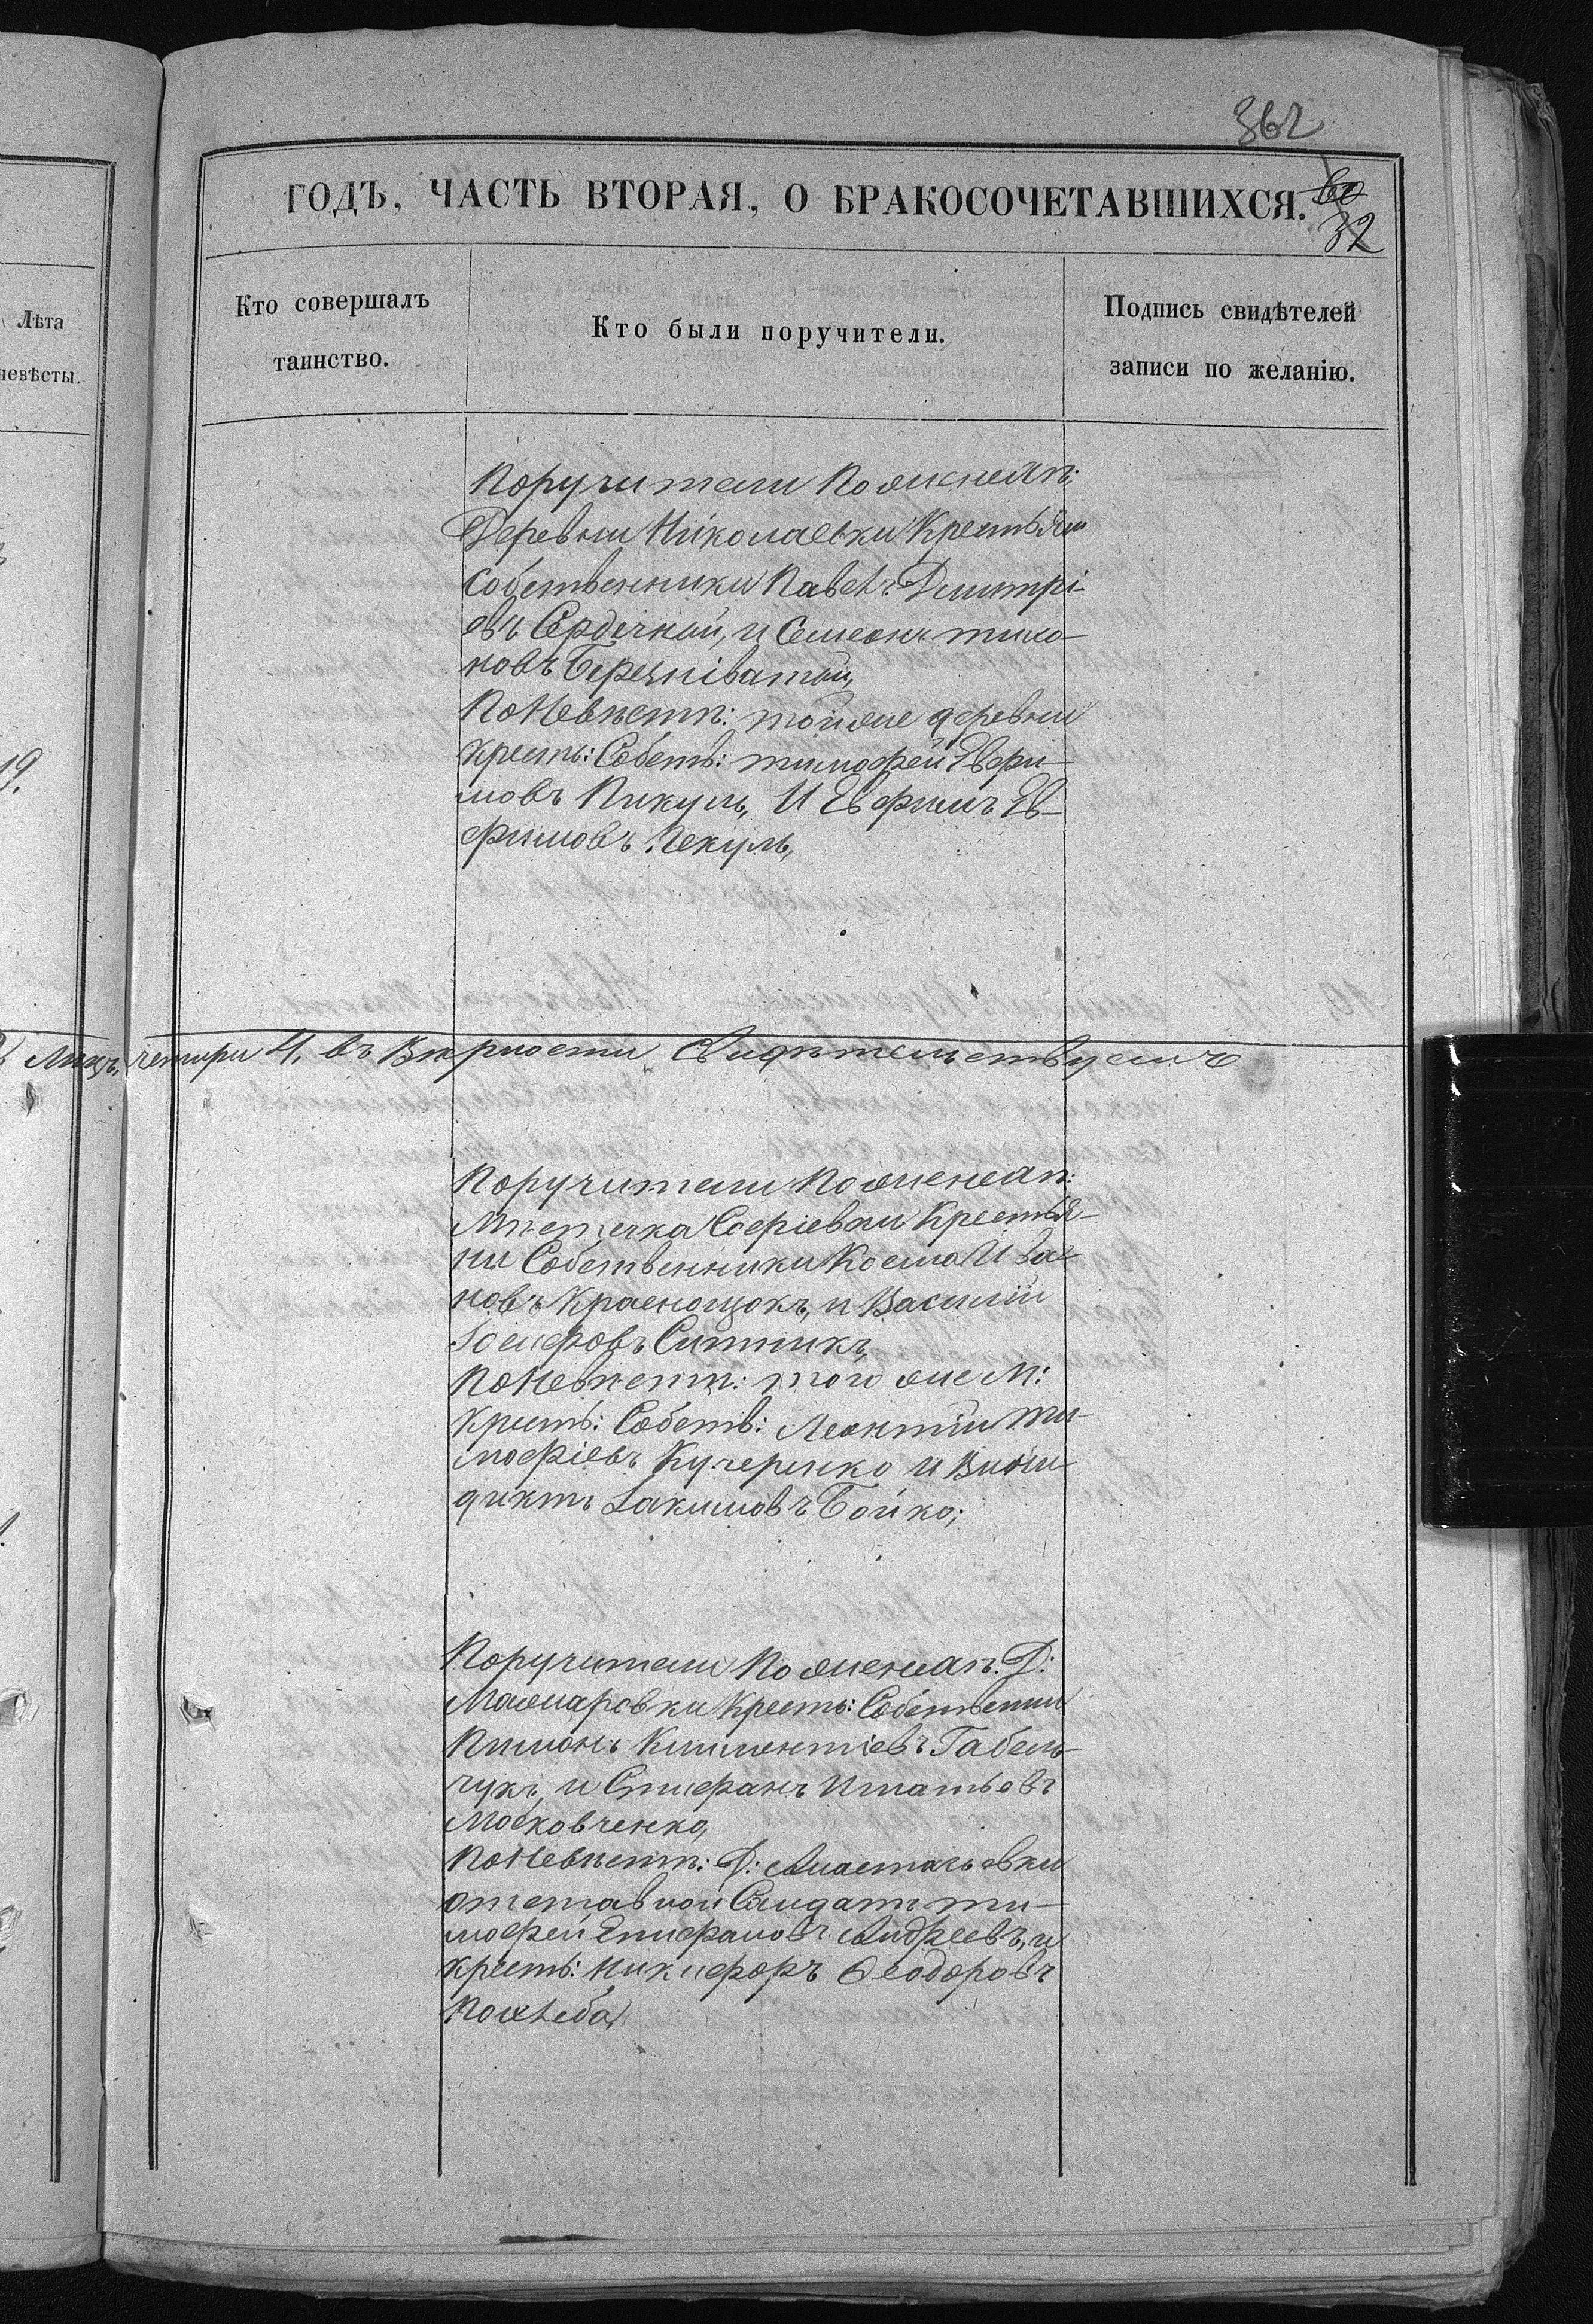 362
ГОДЪ, ЧАСТЬ ВТОРАЯ, О БРАКОСОЧЕТАВШИХСЯ.
60
32
Лѣта
невѣсты.
Кто совершалъ
таинство.
Кто были поручители.
Подпись свидѣтелей
записи по желанію.
19.
Поручители По жениха:
Деревни Николаевки Крестьяни
Собственники Павелъ Дмитрі-
евъ Сердечный, и Семеонъ тихо-
новъ
По Невѣстѣ: той же деревни
Крестъ: Собств: тимофей Ефи-
мовъ Пикуль, И Ефимъ Еф-
фимовъ Пекуль,
Лицъ, четыри 4, въ Вѣрности Свидѣтельствуемъ
Поручители По жениха:
Мѣстечка Софіевки Крестья-
ни Собственники Косма Ива-
новъ Краснощокъ, и Василій
Іосифовъ Ситникъ,
По Невѣстѣ: того же М:
Крестъ: Собств: Леонтий Ти-
мофіевъ Кучеренко и
Іакимовъ Бойко;
Поручители По жениха: Д:
Макаровки Крестъ: Собственни
Пимонъ Климентіевъ Габель-
чукъ, и Стифанъ Игнатьевъ
Московченко,
По Невѣстѣ: Д: Анастасьевки
отставной Салдатъ ти-
мофей Епифановъ Андреевъ, и
Крестъ: Никифоръ Феодоровъ